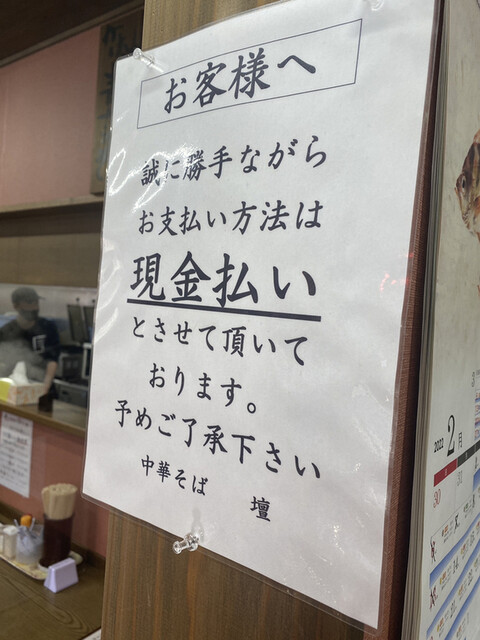 お客様へ
誠に勝手ながら
お支払い方法は
現金払い
とさせて頂いて
おります。
予めご了承下さい
中華そば 壇
2022 2月
30 31